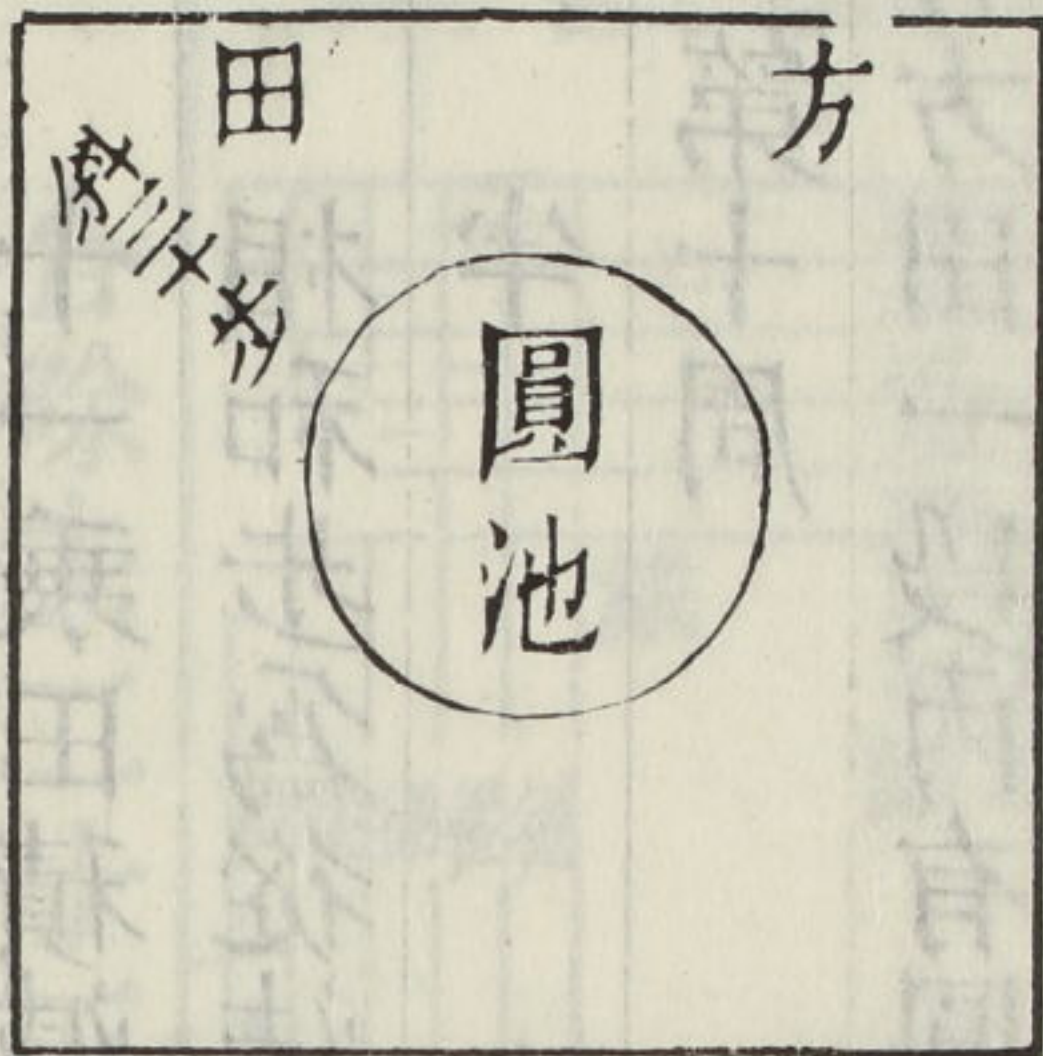 方田
斜三十步
圓池